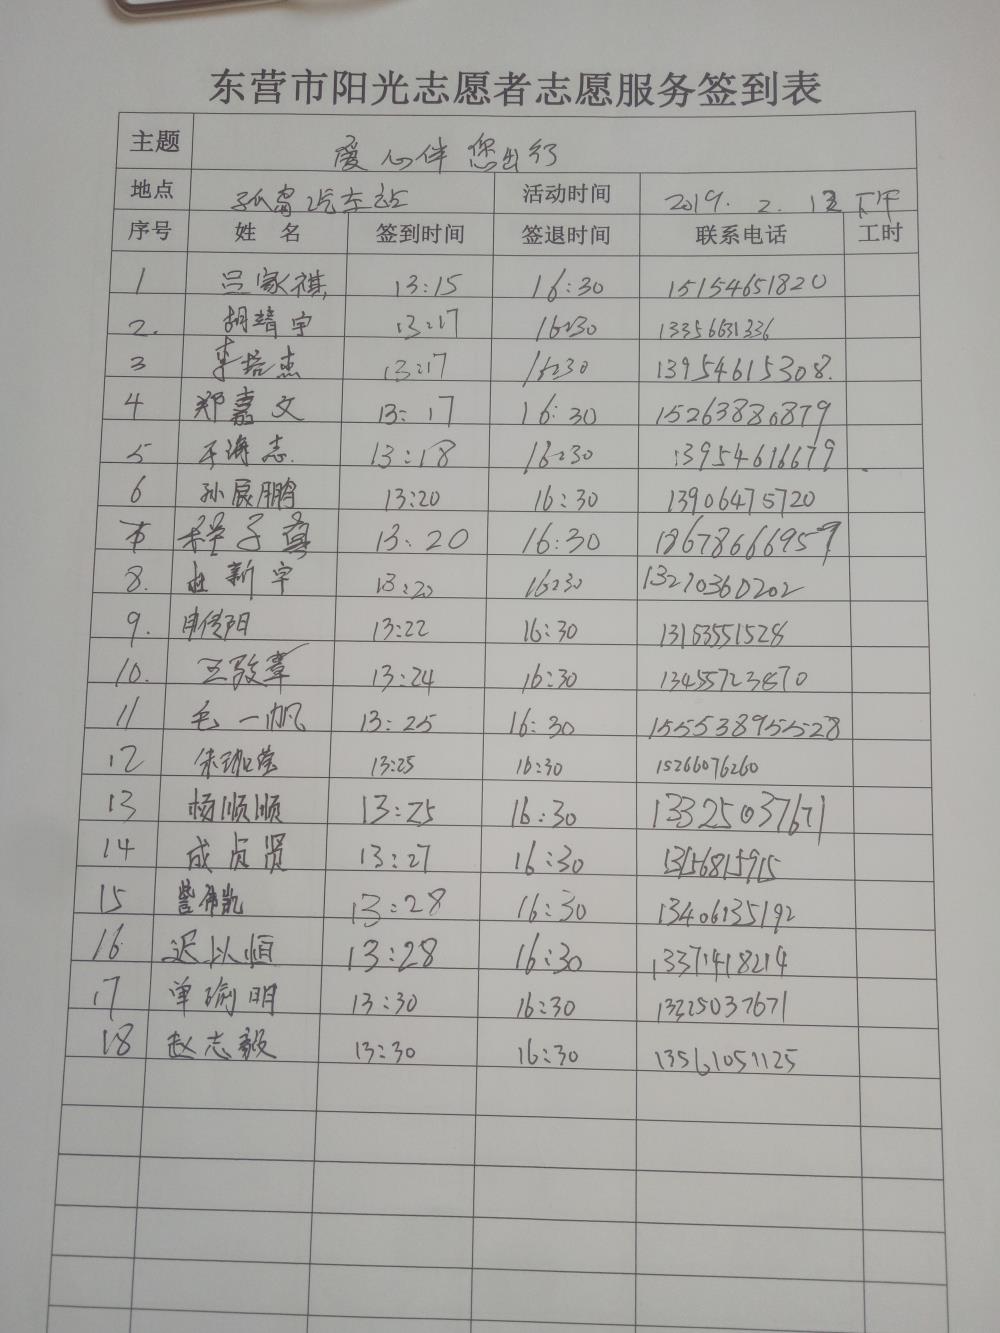 东营市阳光志愿者志愿服务签到表
主题 爱心伴您出行
地点 孤岛汽车站 活动时间 2019. 2. 下午
序号 姓名 签到时间 签退时间 联系电话 工时
1 吕家祺 13:15 16:30 15154651820
2. 胡靖宇 13:17 16:30 13356631336
3 李培杰 13:17 16:30 13954615308.
4 郑嘉文 13:17 16:30 15263880879
5 王海志. 13:18 16:30 13954616679
6 孙晨鹏 13:20 16:30 13906475720
程子真 13:20 16:30 18678666957
8. 杜新宇 13:20 16:30 13210360202
9. 申传阳 13:22 16:30 13163551528
10. 王敬章 13:24 16:30 13455723870
11 毛一帆 13:25 16:30 15553895528
12 朱珈莹 13:25 16:30 15266076260
13 杨顺顺 13:25 16:30 13325037671
14 成贞贤 13:27 16:30 13156815915
15 13:28 16:30 13406135192
16 迟以恒 13:28 16:30 13371418214
17 单瑜明 13:30 16:30 13325037671
18 赵志毅 13:30 16:30 13561051125